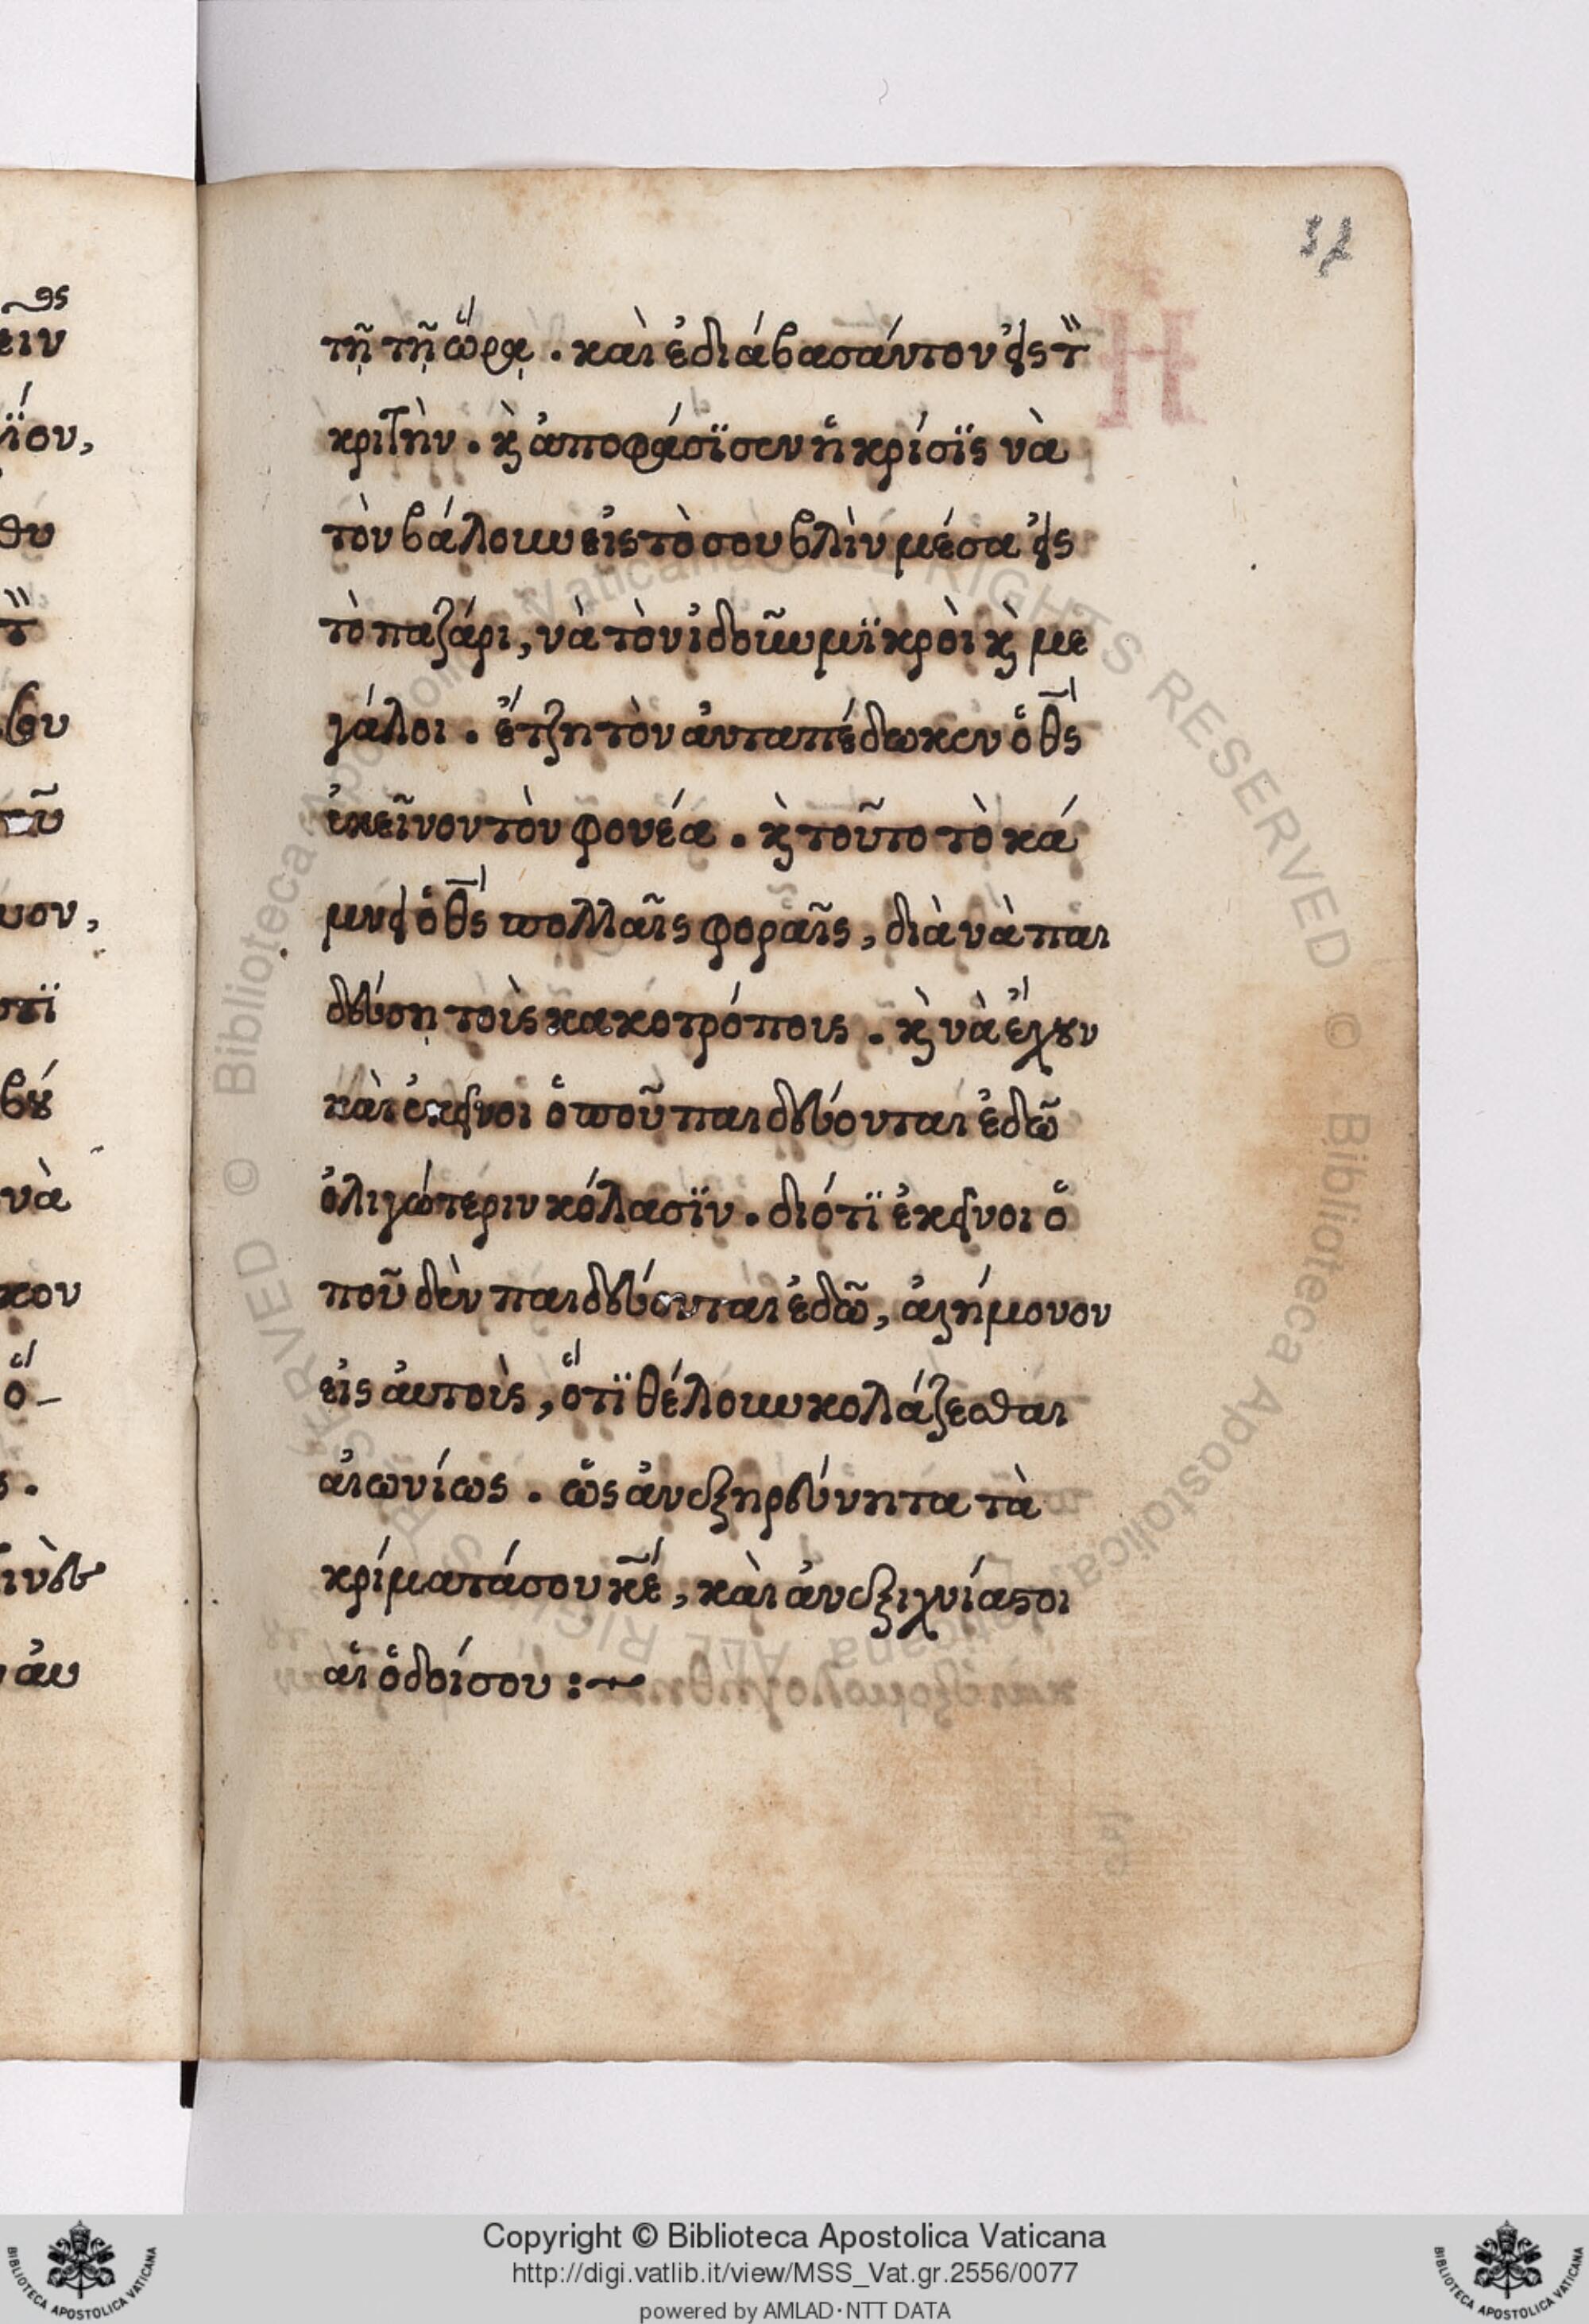 37
τῇ τῇ ὥρᾳ . καὶ ἐδιάβασάν τον εἰς τὸν
κριτὴν . κ̀ ἀποφάσϊσεν ἡ κρίσϊς νὰ
τὸν βάλουν εἰς τὸ σουβλὶν μέσα εἰς
τὸ παζάρι, νὰ τὸν ἰδοῦν μϊκρὸι κ̀ με
γάλοι . ἔτζη τὸν ἀνταπέδωκεν ὁ θς
ἐκεῖνον τὸν φονέα . κ̀ τοῦτο τὸ κά
μνει ὁ θς πολλαῖς φοραῖς, διὰ νὰ παι
δεύσῃ τοὶς κακοτρόποις . κ̀ νὰ ἔχουν
καὶ ἐκεῖνοι ὁποῦ παιδεύονται ἐδῶ
ὀλιγώτεριν κόλασϊν . διότϊ ἐκεῖνοι ὁ
ποῦ δὲν παιδεύονται ἐδῶ, ἀλήμονον
εἰς ἀυτοὶς, ὅτϊ θέλουν κολάζεσθαι
ἀιωνίως . ὡς ἀνεξηρεύνητα τὰ
κρίματά σου κέ, καὶ ἀνεξιχνίαστοι
αἱ ὁδοί σου :~
Copyright © Biblioteca Apostolica Vaticana
http://digi.vatlib.it/view/MSS_Vat.gr.2556/0077
powered by AMLAD·NTT DATA